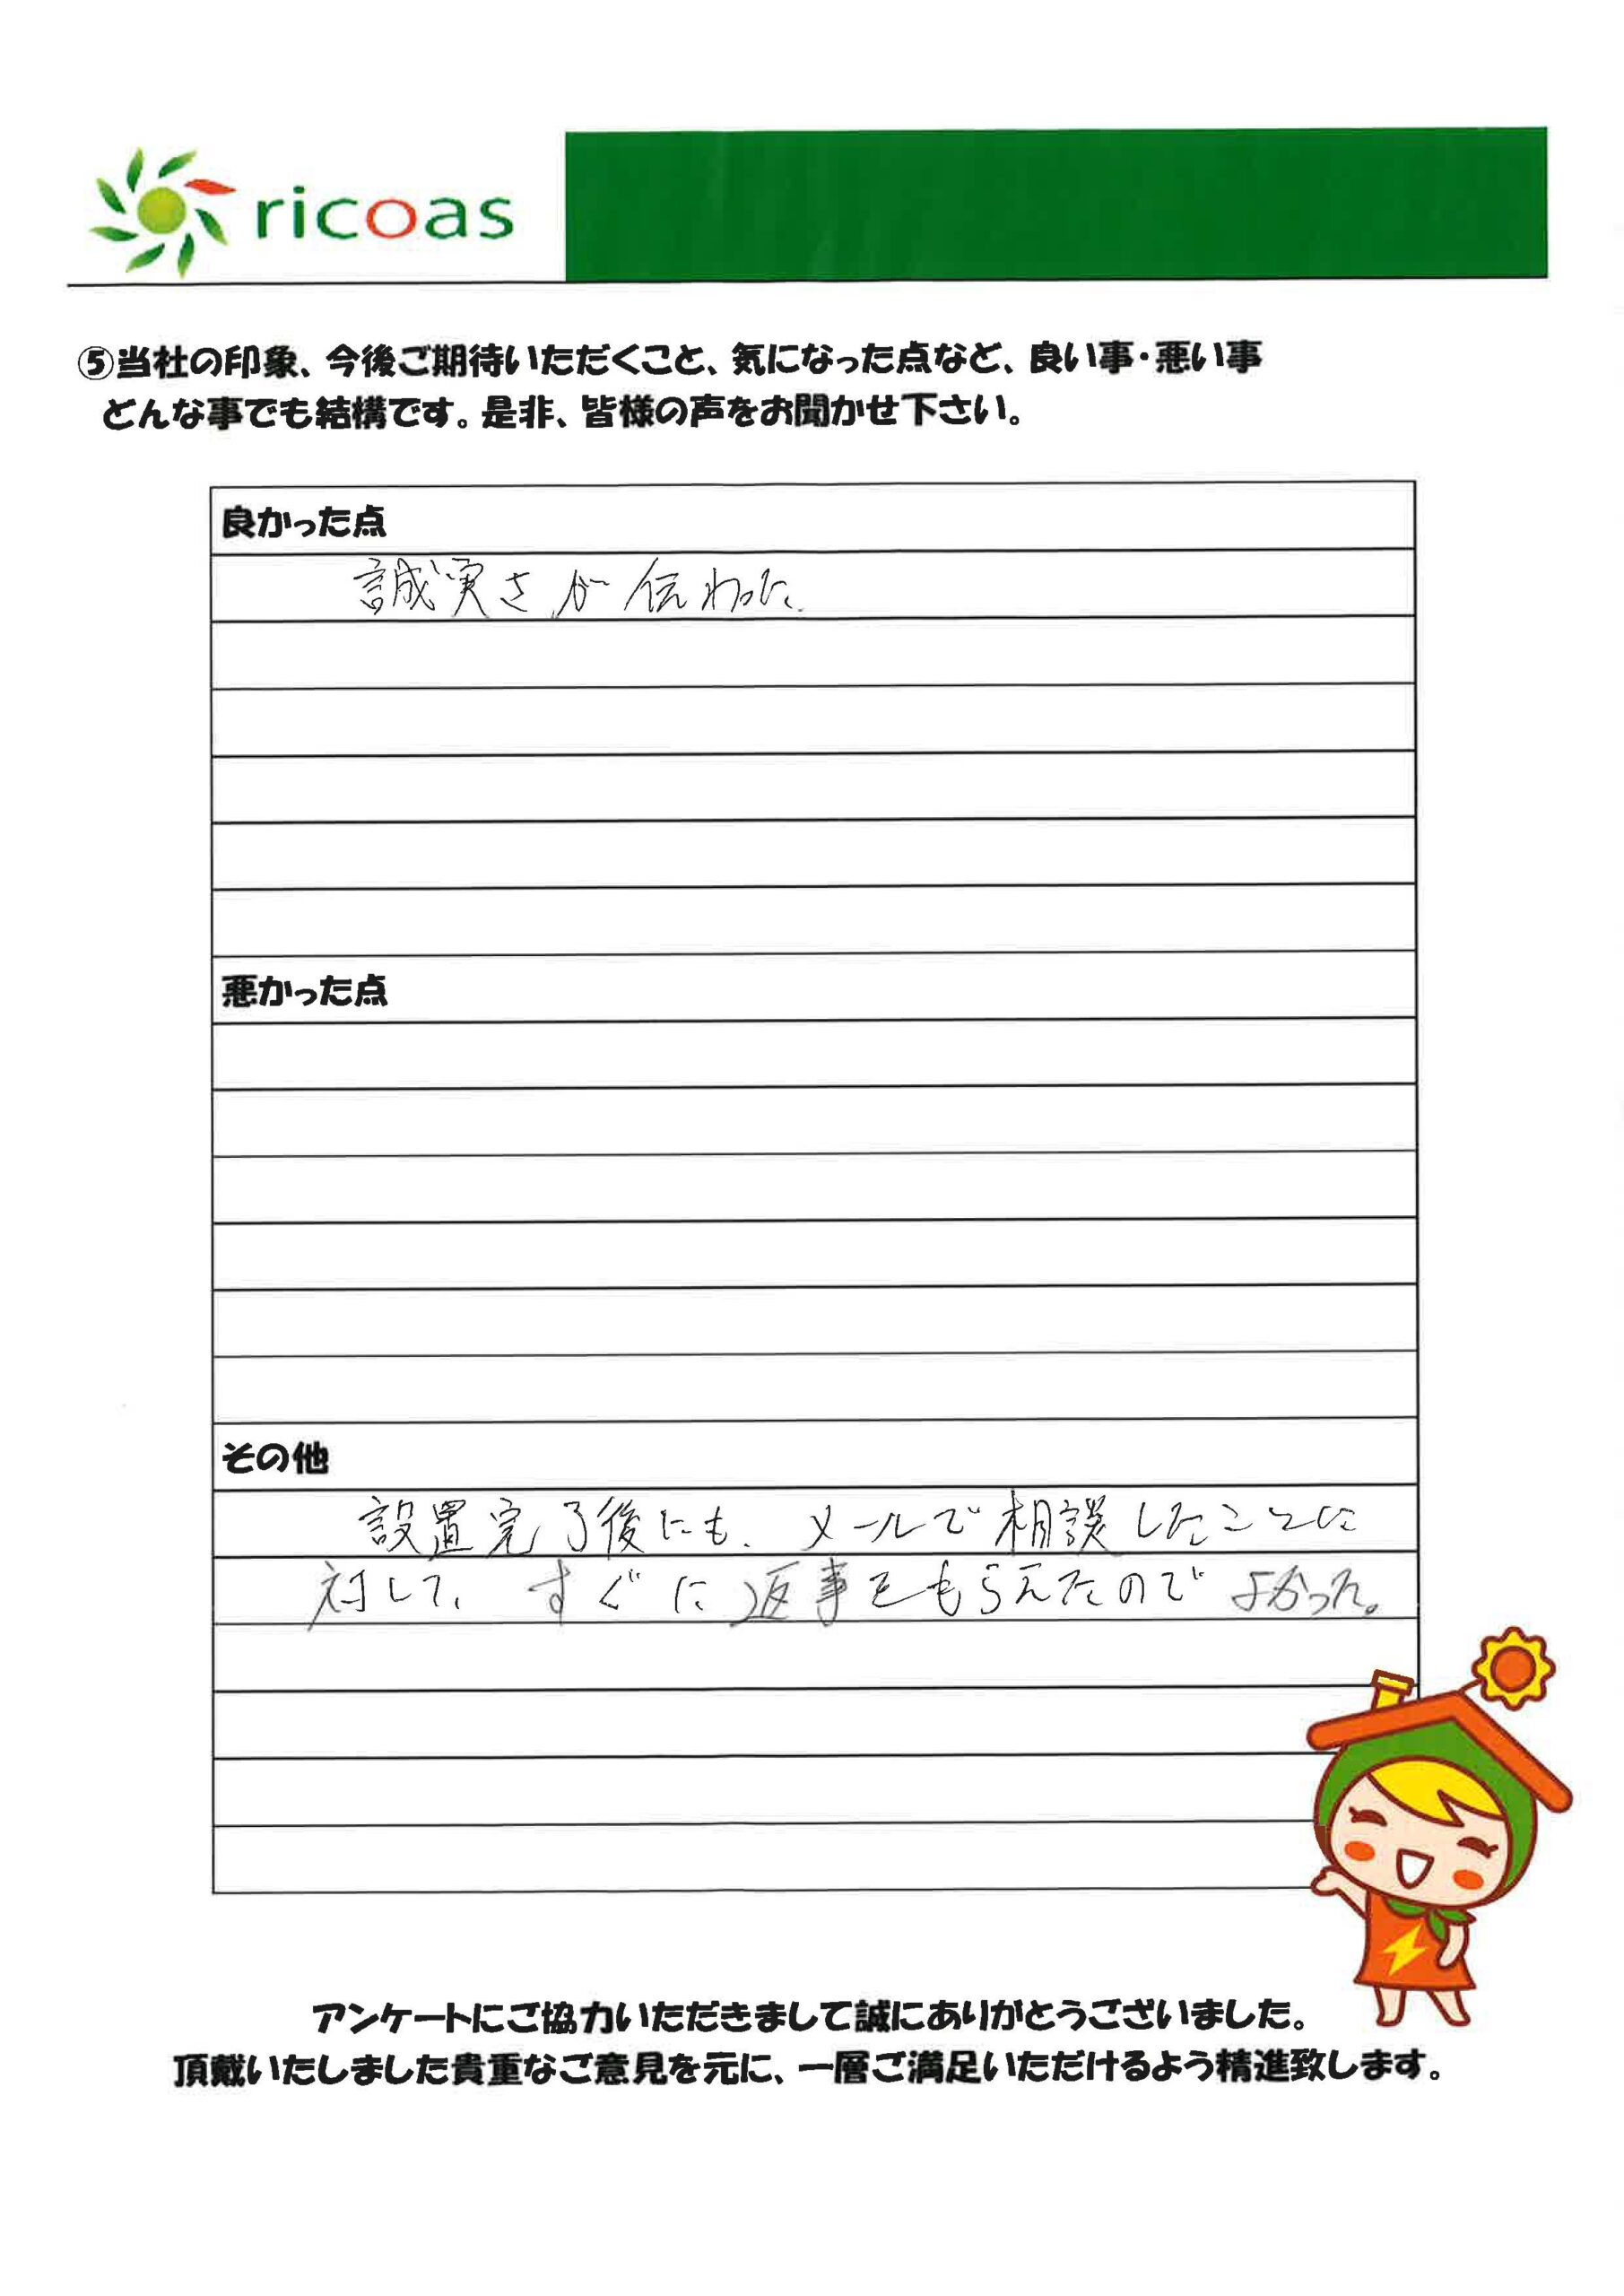 ricoas
⑤当社の印象、今後ご期待いただくこと、気になった点など、良い事・悪い事
どんな事でも結構です。是非、皆様の声をお聞かせ下さい。
良かった点
誠実さが伝わった。
悪かった点
その他
設置完了後にも、メールで相談したことに
対して、すぐに返事をもらえたのでよかった。
アンケートにご協力いただきまして誠にありがとうございました。
頂戴いたしました貴重なご意見を元に、一層ご満足いただけるよう精進致します。